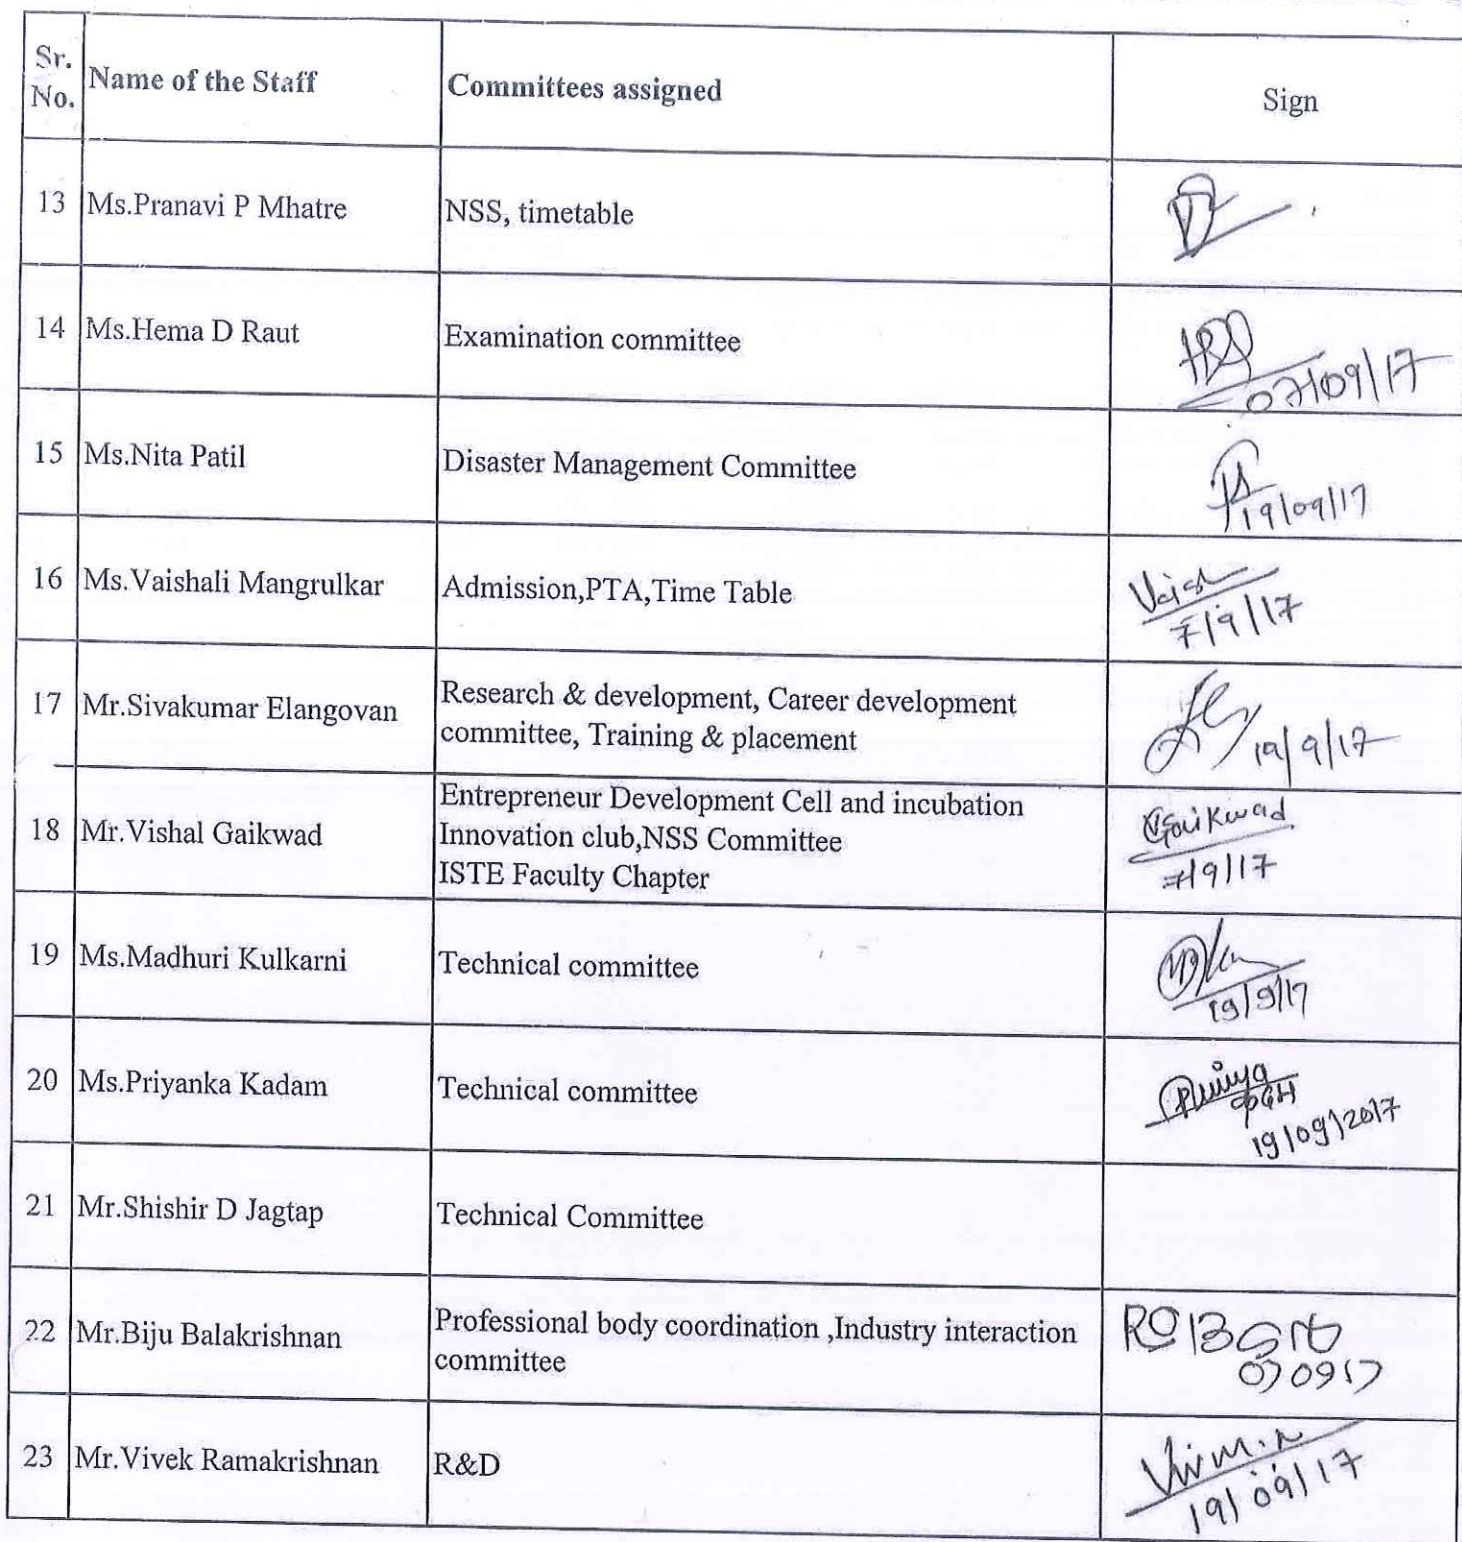 Sr. No. Name of the Staff Committees assigned Sign
13 Ms.Pranavi P Mhatre NSS, timetable
14 Ms.Hema D Raut Examination committee
07/09/17
15 Ms.Nita Patil Disaster Management Committee
19/09/17
16 Ms.Vaishali Mangrulkar Admission,PTA,Time Table
7/9/17
17 Mr.Sivakumar Elangovan Research & development, Career development
committee, Training & placement
19/9/17
Entrepreneur Development Cell and incubation
18 Mr.Vishal Gaikwad Innovation club,NSS Committee
ISTE Faculty Chapter
Gaikwad
7/9/17
19 Ms.Madhuri Kulkarni Technical committee
19/9/17
20 Ms.Priyanka Kadam Technical committee
19/09/2017
21 Mr.Shishir D Jagtap Technical Committee
22 Mr.Biju Balakrishnan Professional body coordination ,Industry interaction
committee
23 Mr.Vivek Ramakrishnan R&D
19/09/17